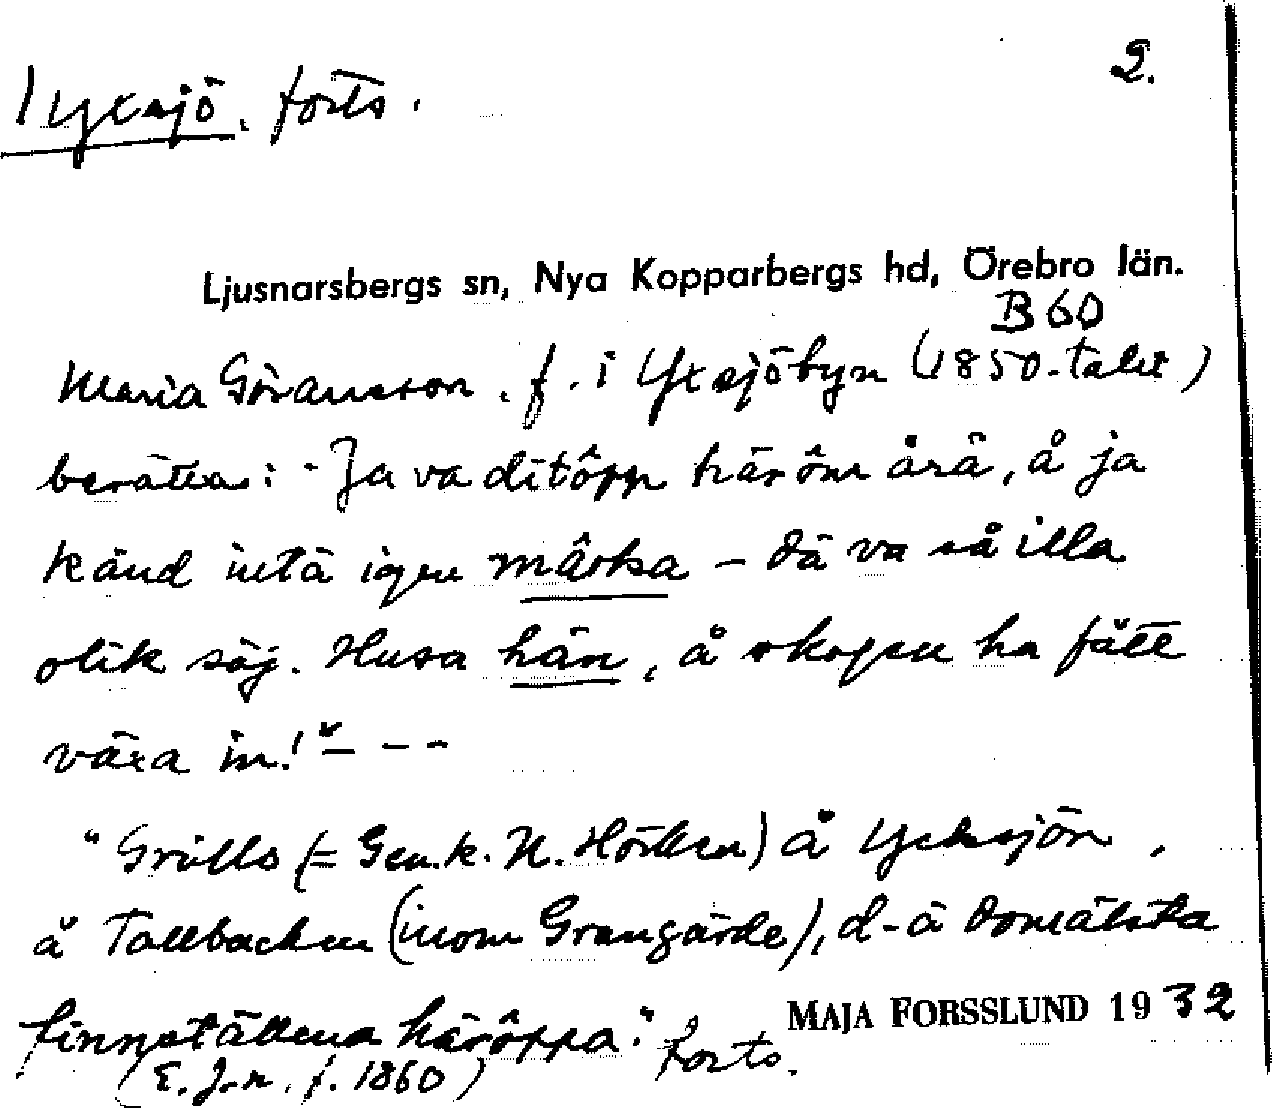 2.
Yxsjö, forts.
Ljusnarsbergs sn, Nya Kopparbergs hd, Örebro län.
B 60
Maria Göransson, f. i Yxsjöbyn (1850-talet)
berättar: "Ja va ditôpp häröm årä, å ja
känd intä igen mârka – dä va så illa
olik säj. Husa hän, å skogen ha fått
växa in!" – – –
"Gröllo (= Gen.k. N. Hörken) å Ycksjön,
å Tallbacken (inom Grangärde), d-ä domälsta
finnställena häröppa." forts.
(E. J-n, f. 1860)
MAJA FORSSLUND 1932